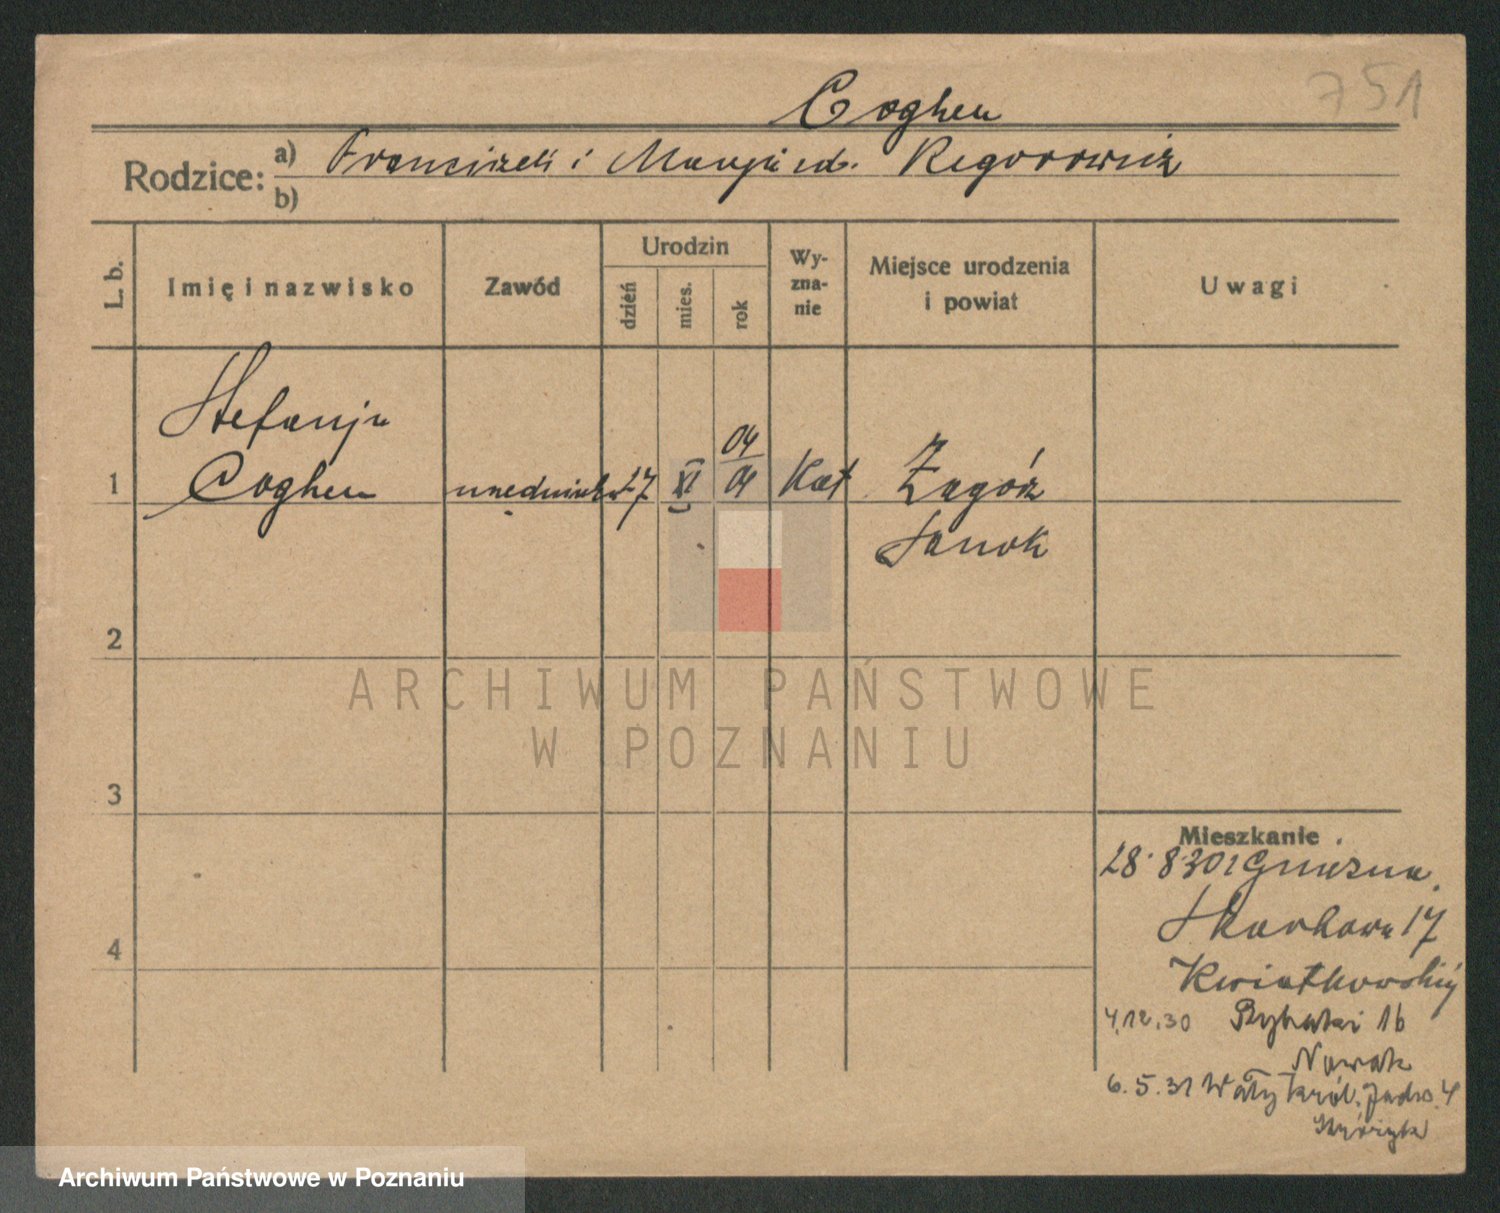 751
Coghen
Rodzice: a) Franciszek i Marya
b)
L. b.
Imię i nazwisko
Zawód
Urodzin
dzień
mies.
rok
Wy-
zna-
nie
Miejsce urodzenia
i powiat
Uwagi
Stefanja
04
1 Coghen 17 XI 04 Kat Zagórz
Sanok
2
ARCHIWUM PAŃSTWOWE
W POZNANIU
3
Mieszkanie
28.8.30 z Gniezna
Skarbowa 17
4
Kwiatkowskiej
4.12.30 Rybaki 16
Nowak
6.5.31 Wały król. Jadw. 4
Archiwum Państwowe w Poznaniu